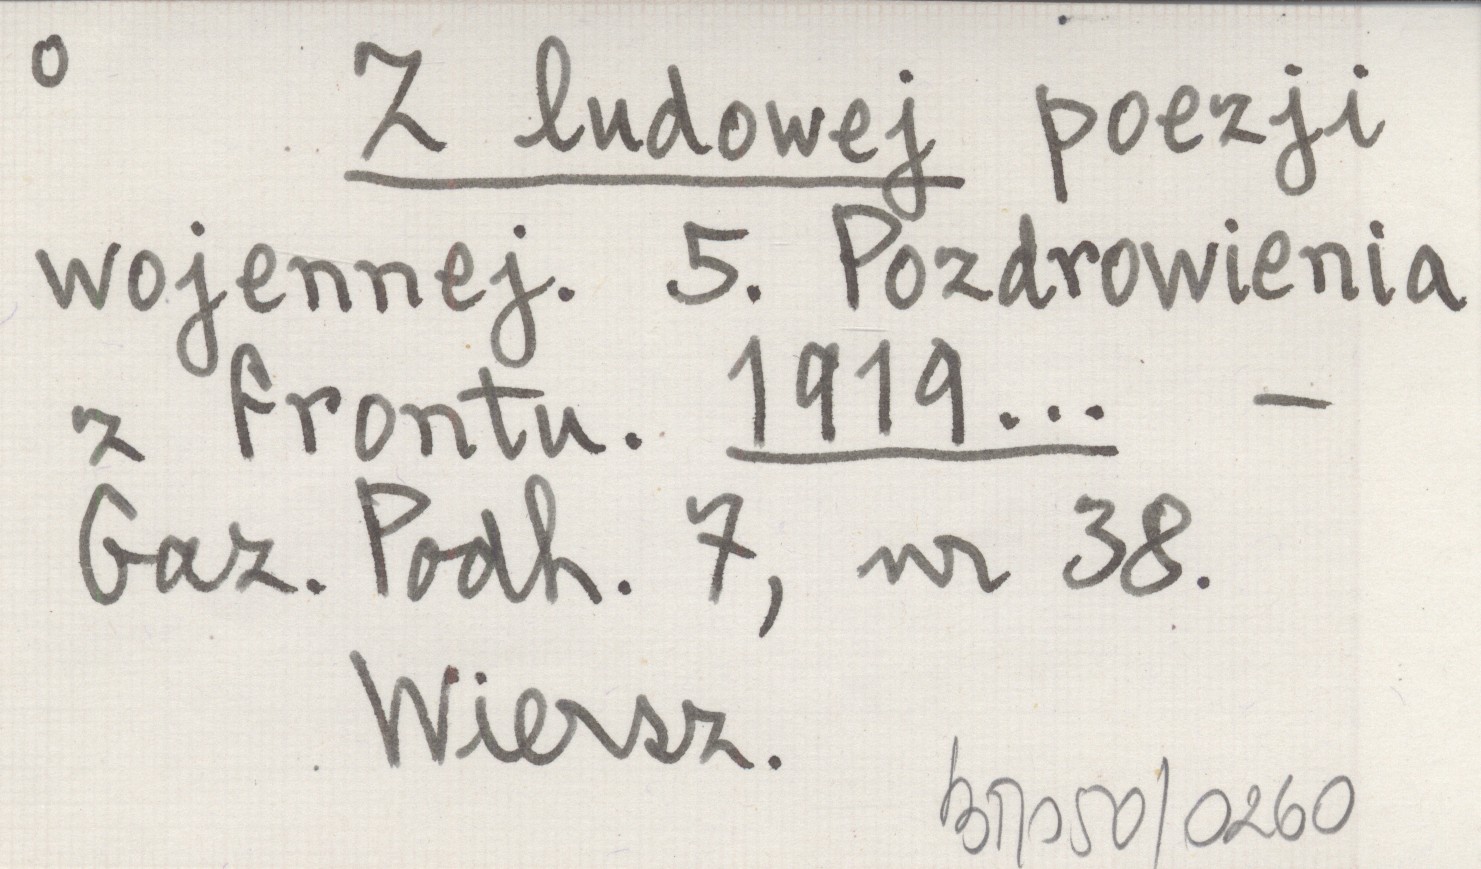 o Z ludowej poezji
wojennej. 5. Pozdrowienia
z frontu. 1919... —
Gaz. Podh. 7, nr 38.
Wiersz.
0260